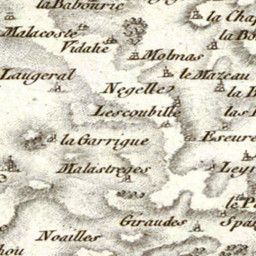 la Babouric
la Chap
Malacoste
Vidalie
la Bo
Molmas
Laugeral
le Mazeau
Negelle
la B
Lescoubille
las
la Garrigue
Escure
Malastreges
Leyr
le P
Giraudes
Spai
Noailles
hou